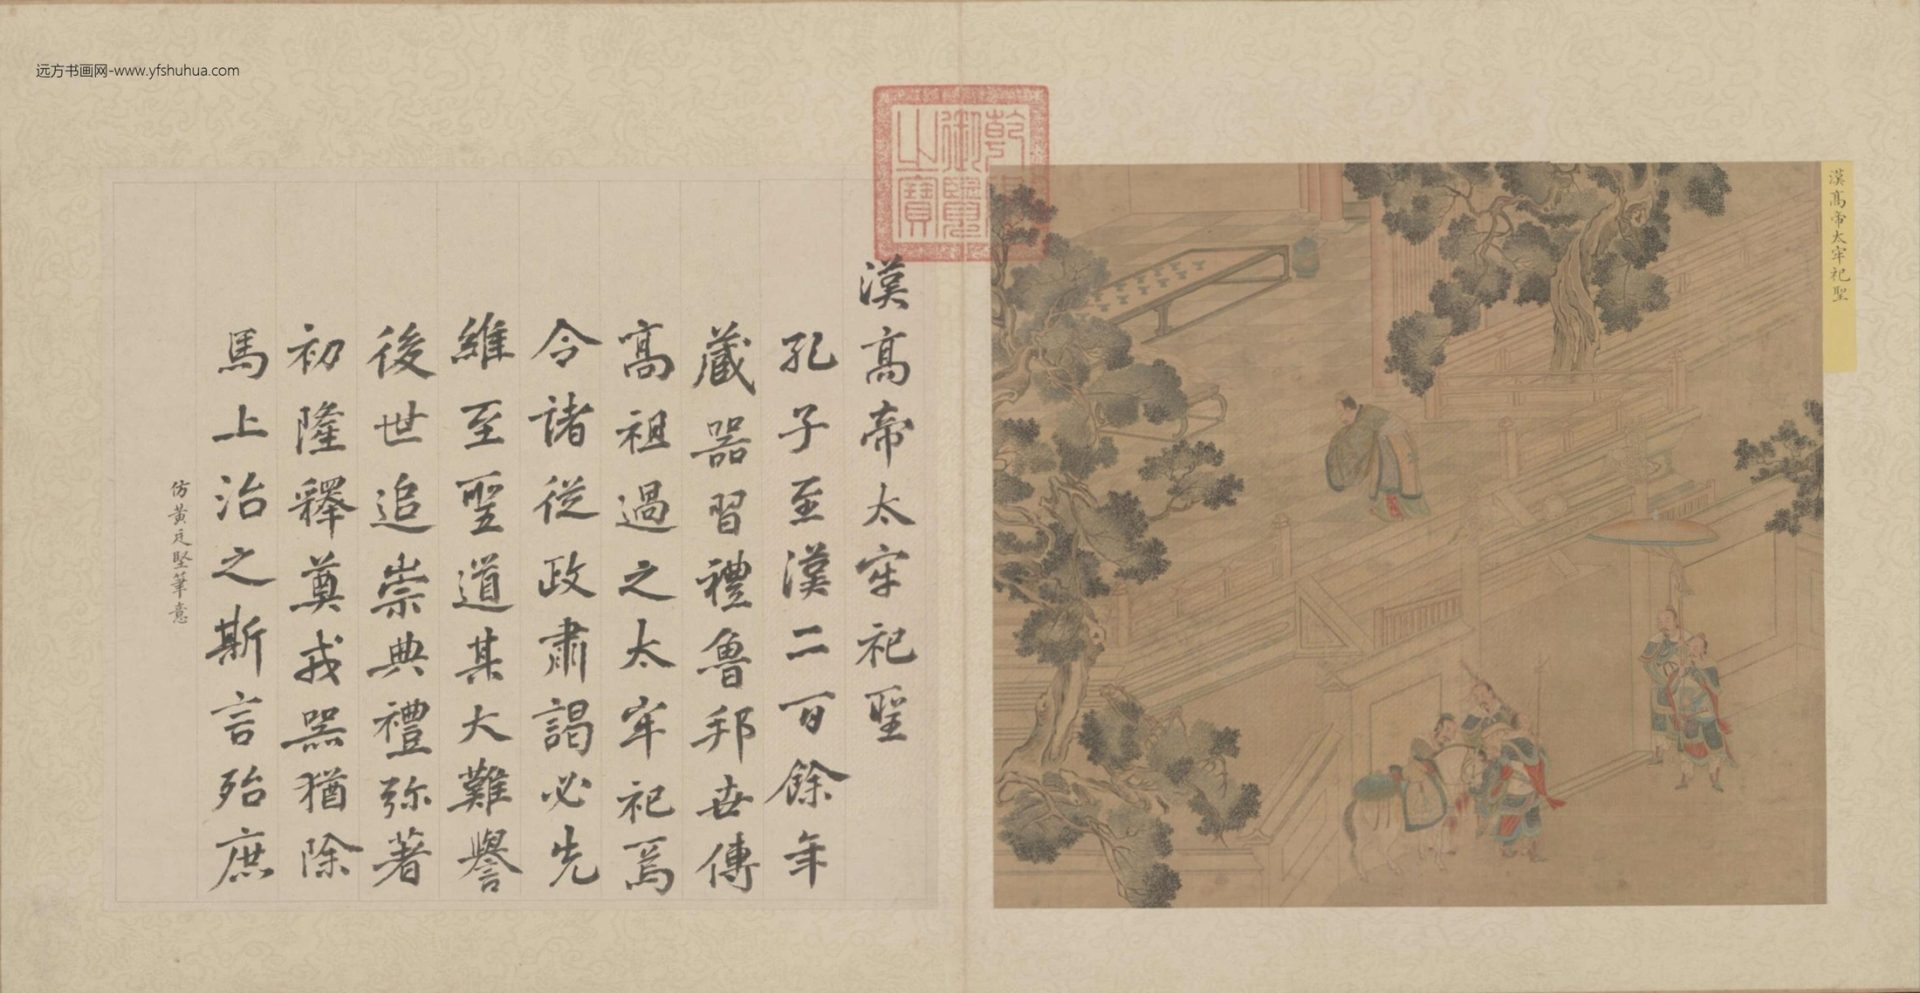 远方书画网-www.yfshuhua.com
漢高帝太牢祀聖
乾隆御覽之寶
漢高帝太牢祀聖
孔子至漢二百餘年
蔵器習禮魯邦世傳
高祖過之太牢祀焉
令諸從政肅謁必先
維至聖道其大難譽
後世追崇典禮弥著
初隆釋奠戎器猶除
馬上治之斯言殆庶
仿黃庭堅筆意